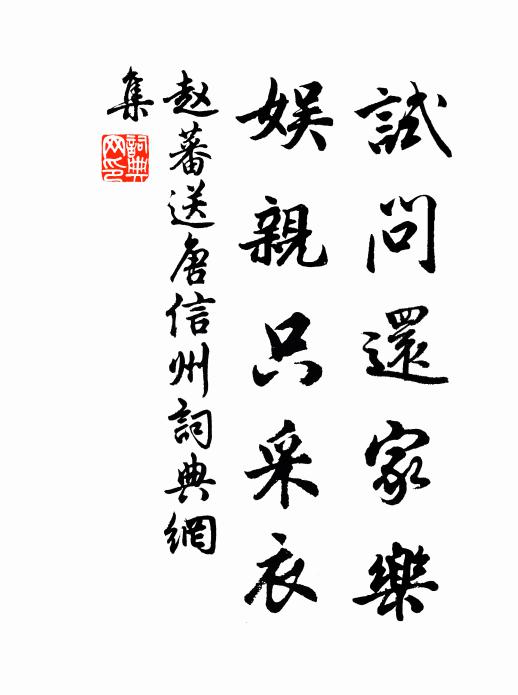 試問還家樂
娛親只采衣
赵蕃送唐信州詞典網
集
詞典网印